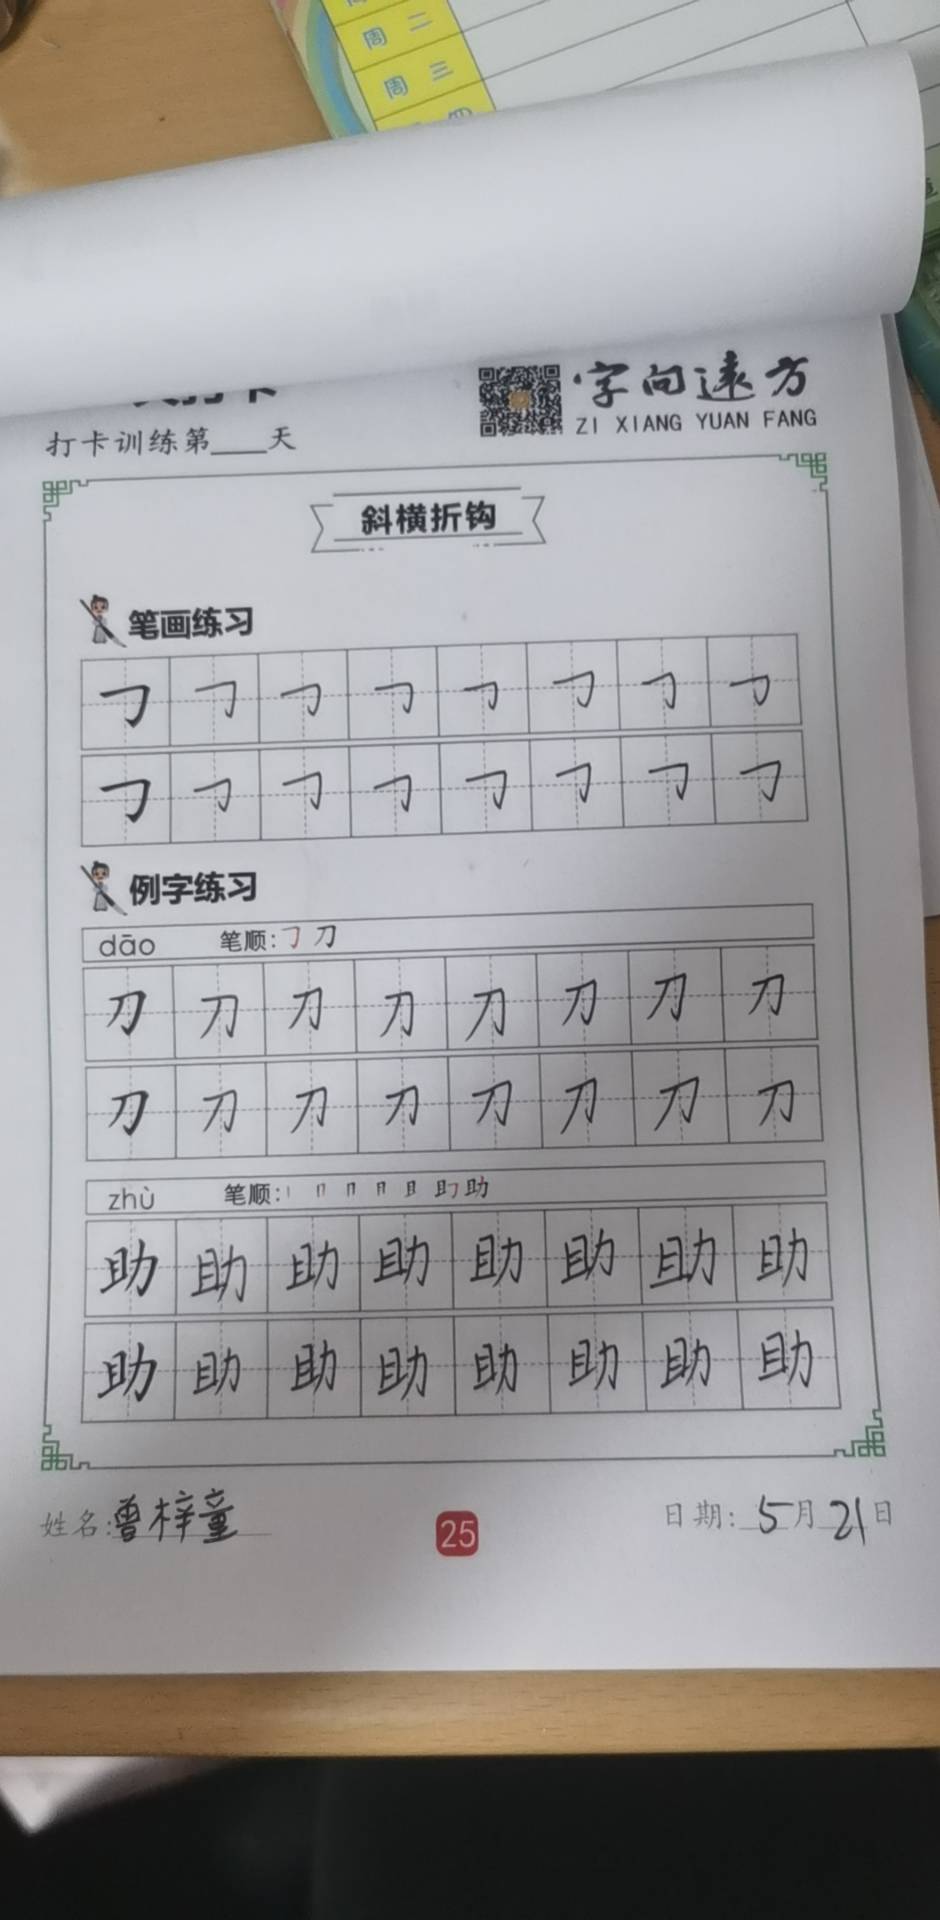 周 二
周 三
四
打卡
字向远方
ZI XIANG YUAN FANG
打卡训练第____天
斜横折钩
笔画练习
㇆ ㇆ ㇆ ㇆ ㇆ ㇆ ㇆ ㇆
㇆ ㇆ ㇆ ㇆ ㇆ ㇆ ㇆ ㇆
例字练习
dāo 笔顺: ㇆ 刀
刀 刀 刀 刀 刀 刀 刀 刀
刀 刀 刀 刀 刀 刀 刀 刀
zhù 笔顺: 丨 冂 冂 月 且 助
助 助 助 助 助 助 助 助
助 助 助 助 助 助 助 助
姓名:曾梓童
25
日期: 5月21日